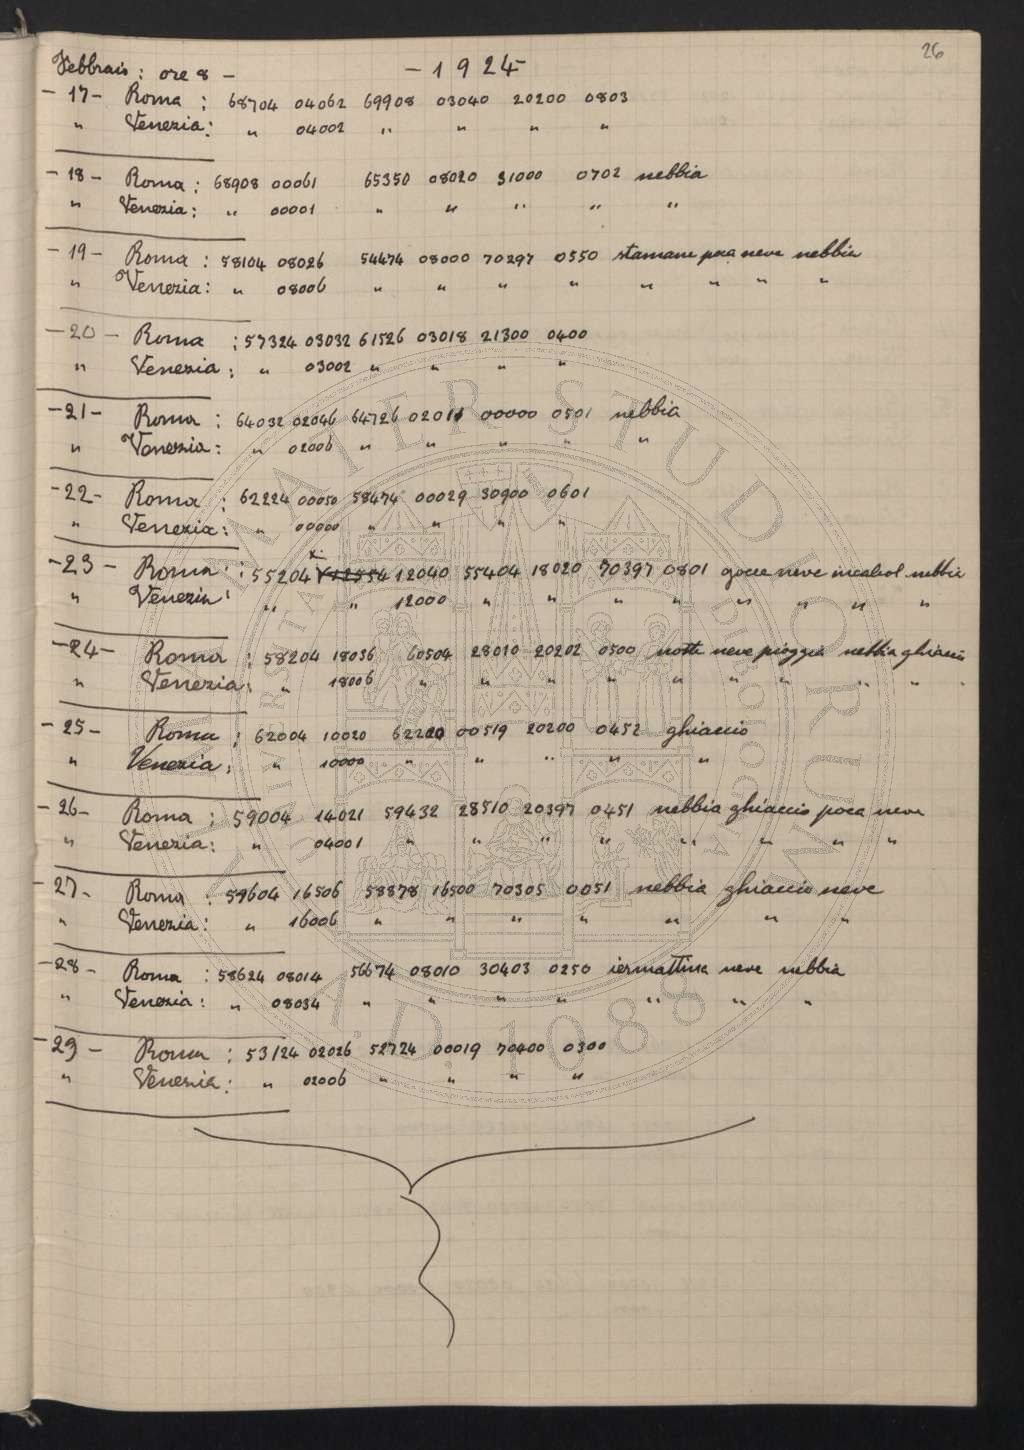 26
Febbraio : ore 8 - - 1924
- 17 - Roma : 68704 04062 69908 03040 20200 0803
" Venezia : " 04002 " " " "
- 18 - Roma : 68908 00061 65350 08020 31000 0702 nebbia
" Venezia : " 00001 " " " " "
- 19 - Roma : 58104 08026 54474 08000 70297 0550 stamane poca neve nebbia
" Venezia : " 08006 " " " " " " " "
- 20 - Roma : 57324 03032 61526 03018 21300 0400
" Venezia : " 03002 " " " "
- 21 - Roma : 64032 02046 64726 02011 00000 0501 nebbia
" Venezia : " 02006 " " " " "
- 22 - Roma : 62224 00050 58474 00029 30900 0601
" Venezia : " 00000 " " " "
- 23 - Roma : 55204 12040 55404 18020 70397 0801 gocce neve nebbia
" Venezia : " " 12000 " " " " " " " "
- 24 - Roma : 58204 18036 60504 28010 20202 0500 notte neve pioggia nebbia ghiaccio
" Venezia : " 18006 " " " " " " " " " "
- 25 - Roma : 62004 10020 62220 00519 20200 0452 ghiaccio
" Venezia : " 10000 " " " " "
- 26 - Roma : 59004 14021 59432 28510 20397 0451 nebbia ghiaccio poca neve
" Venezia : " 04001 " " " " " " " "
- 27 - Roma : 59604 16506 58878 16500 70305 0051 nebbia ghiaccio neve
" Venezia : " 16006 " " " " " " "
- 28 - Roma : 58624 08014 56674 08010 30403 0250 iermattina neve nebbia
" Venezia : " 08034 " " " " " " "
- 29 - Roma : 53124 02026 52724 00019 70400 0300
" Venezia : " 02006 " " " "
ALMA MATER STUDIORUM
A.D. 1088